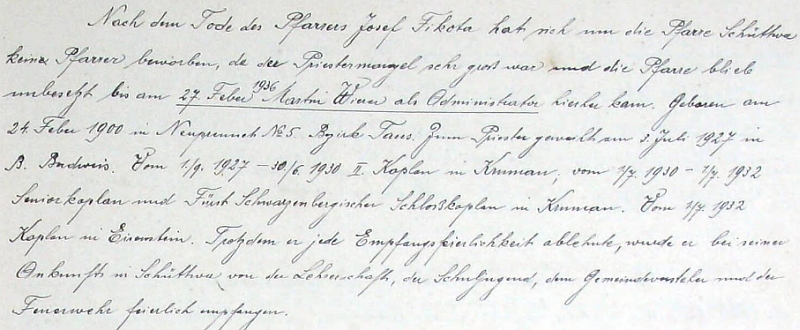 Nach dem Tode des Pfarrers Josef Fikota hat sich um die Pfarre Schüttwa
keiner Pfarrer beworben, da der Priestermangel sehr gross war und die Pfarre blieb
unbesetzt bis am 27. Feber 1936 Martin Wierer als Administrator hieher kam. Geboren am
24. Feber 1900 in Neuprennet No 5 Bezirk Taus. Zum Priester geweiht am 3. Juli 1927 in
B. Budweis. Vom 1/9. 1927 – 30/6. 1930 II. Kaplan in Krumau, vom 1/7. 1930 – 1/7. 1932
Seniorkaplan und Fürst Schwarzenbergischer Schloßkaplan in Krumau. Vom 1/7. 1932
Kaplan in Eisenstein. Trotzdem er jede Empfangsfeierlichkeit ablehnte, wurde er bei seiner
Ankunft in Schüttwa von der Lehrerschaft, der Schuljugend, dem Gemeindevorsteher und der
Feuerwehr feierlich empfangen.